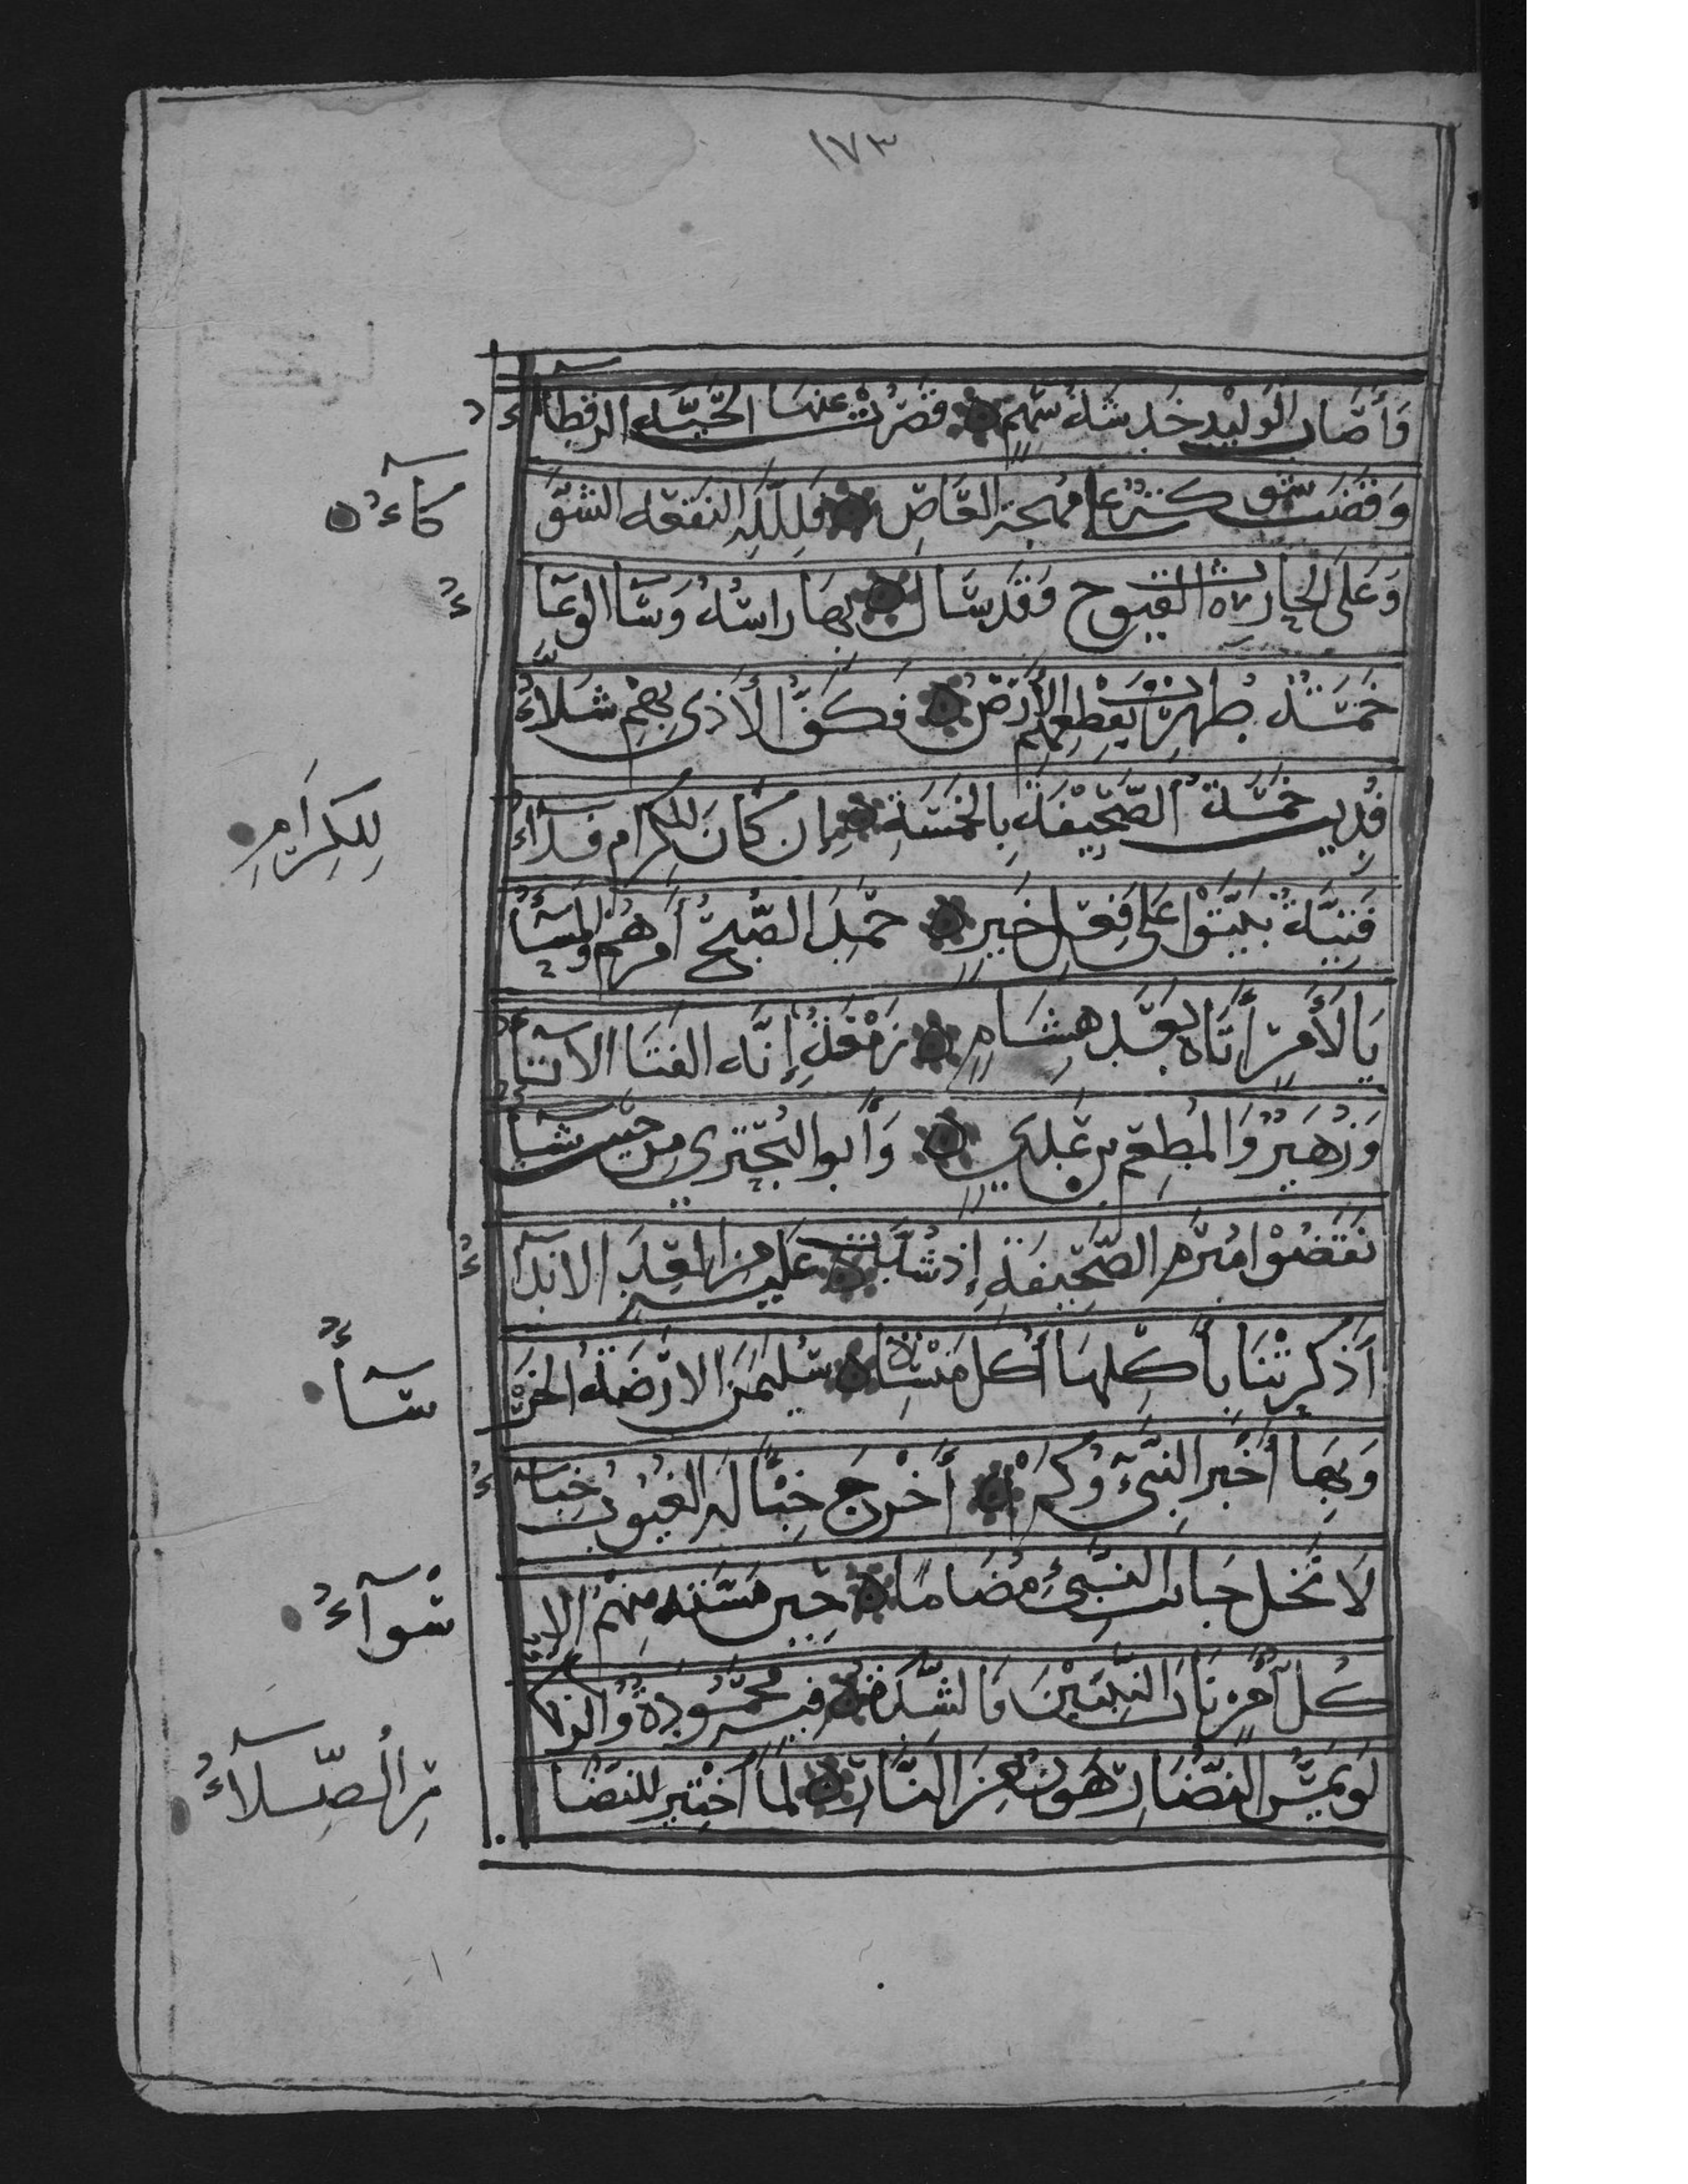 ١٧٣
وَأَصَابَ الوَلِيْدَ خَدْشَةُ سَهْمٍ قَصُرَتْ عَنْهَا الحَيَّةُ الرَقْطَآءُ
وَقَضَتْ شَوْكَةٌ عَلَى مُهْجَةِ العَاصِ فَلِلَّهِ النَقْعَةُ الشَوْكَآءُ
وَعَلَى الحَارِثِ القُيُوحُ وَقَدْ سَالَ بِهَا رَاسُهُ وَسَا الوِعَآءُ
خَمْسَةٌ طُهِرَتْ بِقَطْعِهِمِ الأَرْضُ فَكَفُّ الأَذَى بِهِمْ شَلَّآءُ
فُدِيَتْ خَمْسَةُ الصَّحِيْفَةِ بِالخَمْسَةِ إِن كَانَ لِلكِرَامِ فِدَآءُ
لِلكِرَامِ
فِتْيَةٌ بَيَّتُوْا عَلَى فِعْلِ خَيْرٍ حَمِدَ الصُّبْحُ أَمْرَهُمْ وَالمَسَآءُ
يَا لَأَمْرٍ أَتَاهُ بَعْدَ هِشَامٍ زَمْعَةٌ إِنَّهُ الفَتَا الاَتَآءُ
وَزُهَيْرٌ وَالمُطْعِمُ بن عَدِيٍّ وَأَبُو البُحْتُرِي مِن حَيْثُ شَآءُ
نَقَضُوْا مُبْرَمَ الصَّحِيْفَةِ إِذ شَدَّتْ عَلَيْهِ مِنَ العِدَا الاَنْدَآءُ
أَذْكَرَتْنَا بِأَكْلِهَا أَكْلَ مِنْسَاةِ سُلَيْمَنَ الاَرْضَةُ الخَرْسَآءُ
وَبِهَا أَخْبَرَ النَّبِيُّ وَكَمْ أَخْرَجَ خَبْأً لَهُ الغُيُوْبُ خِبَآءُ
لَا تَخَل جَانِبَ النَّبِيِّ مُضَامًا حِيْنَ مَسَّتْهُ مِنْهُمُ الاَسْوَآءُ
كُلُّ أَمْرٍ نَابَ النَّبِيِّيْنَ فَالشِّدَّةُ فِيْهِ مَحْمُوْدَةٌ وَالرَخَآءُ
لَو يَمَسُّ النُّضَارَ هُوْنٌ مِنَ النَّارِ لَمَا اخْتِيْرَ لِلنُضَارِ الصِّلَآءُ